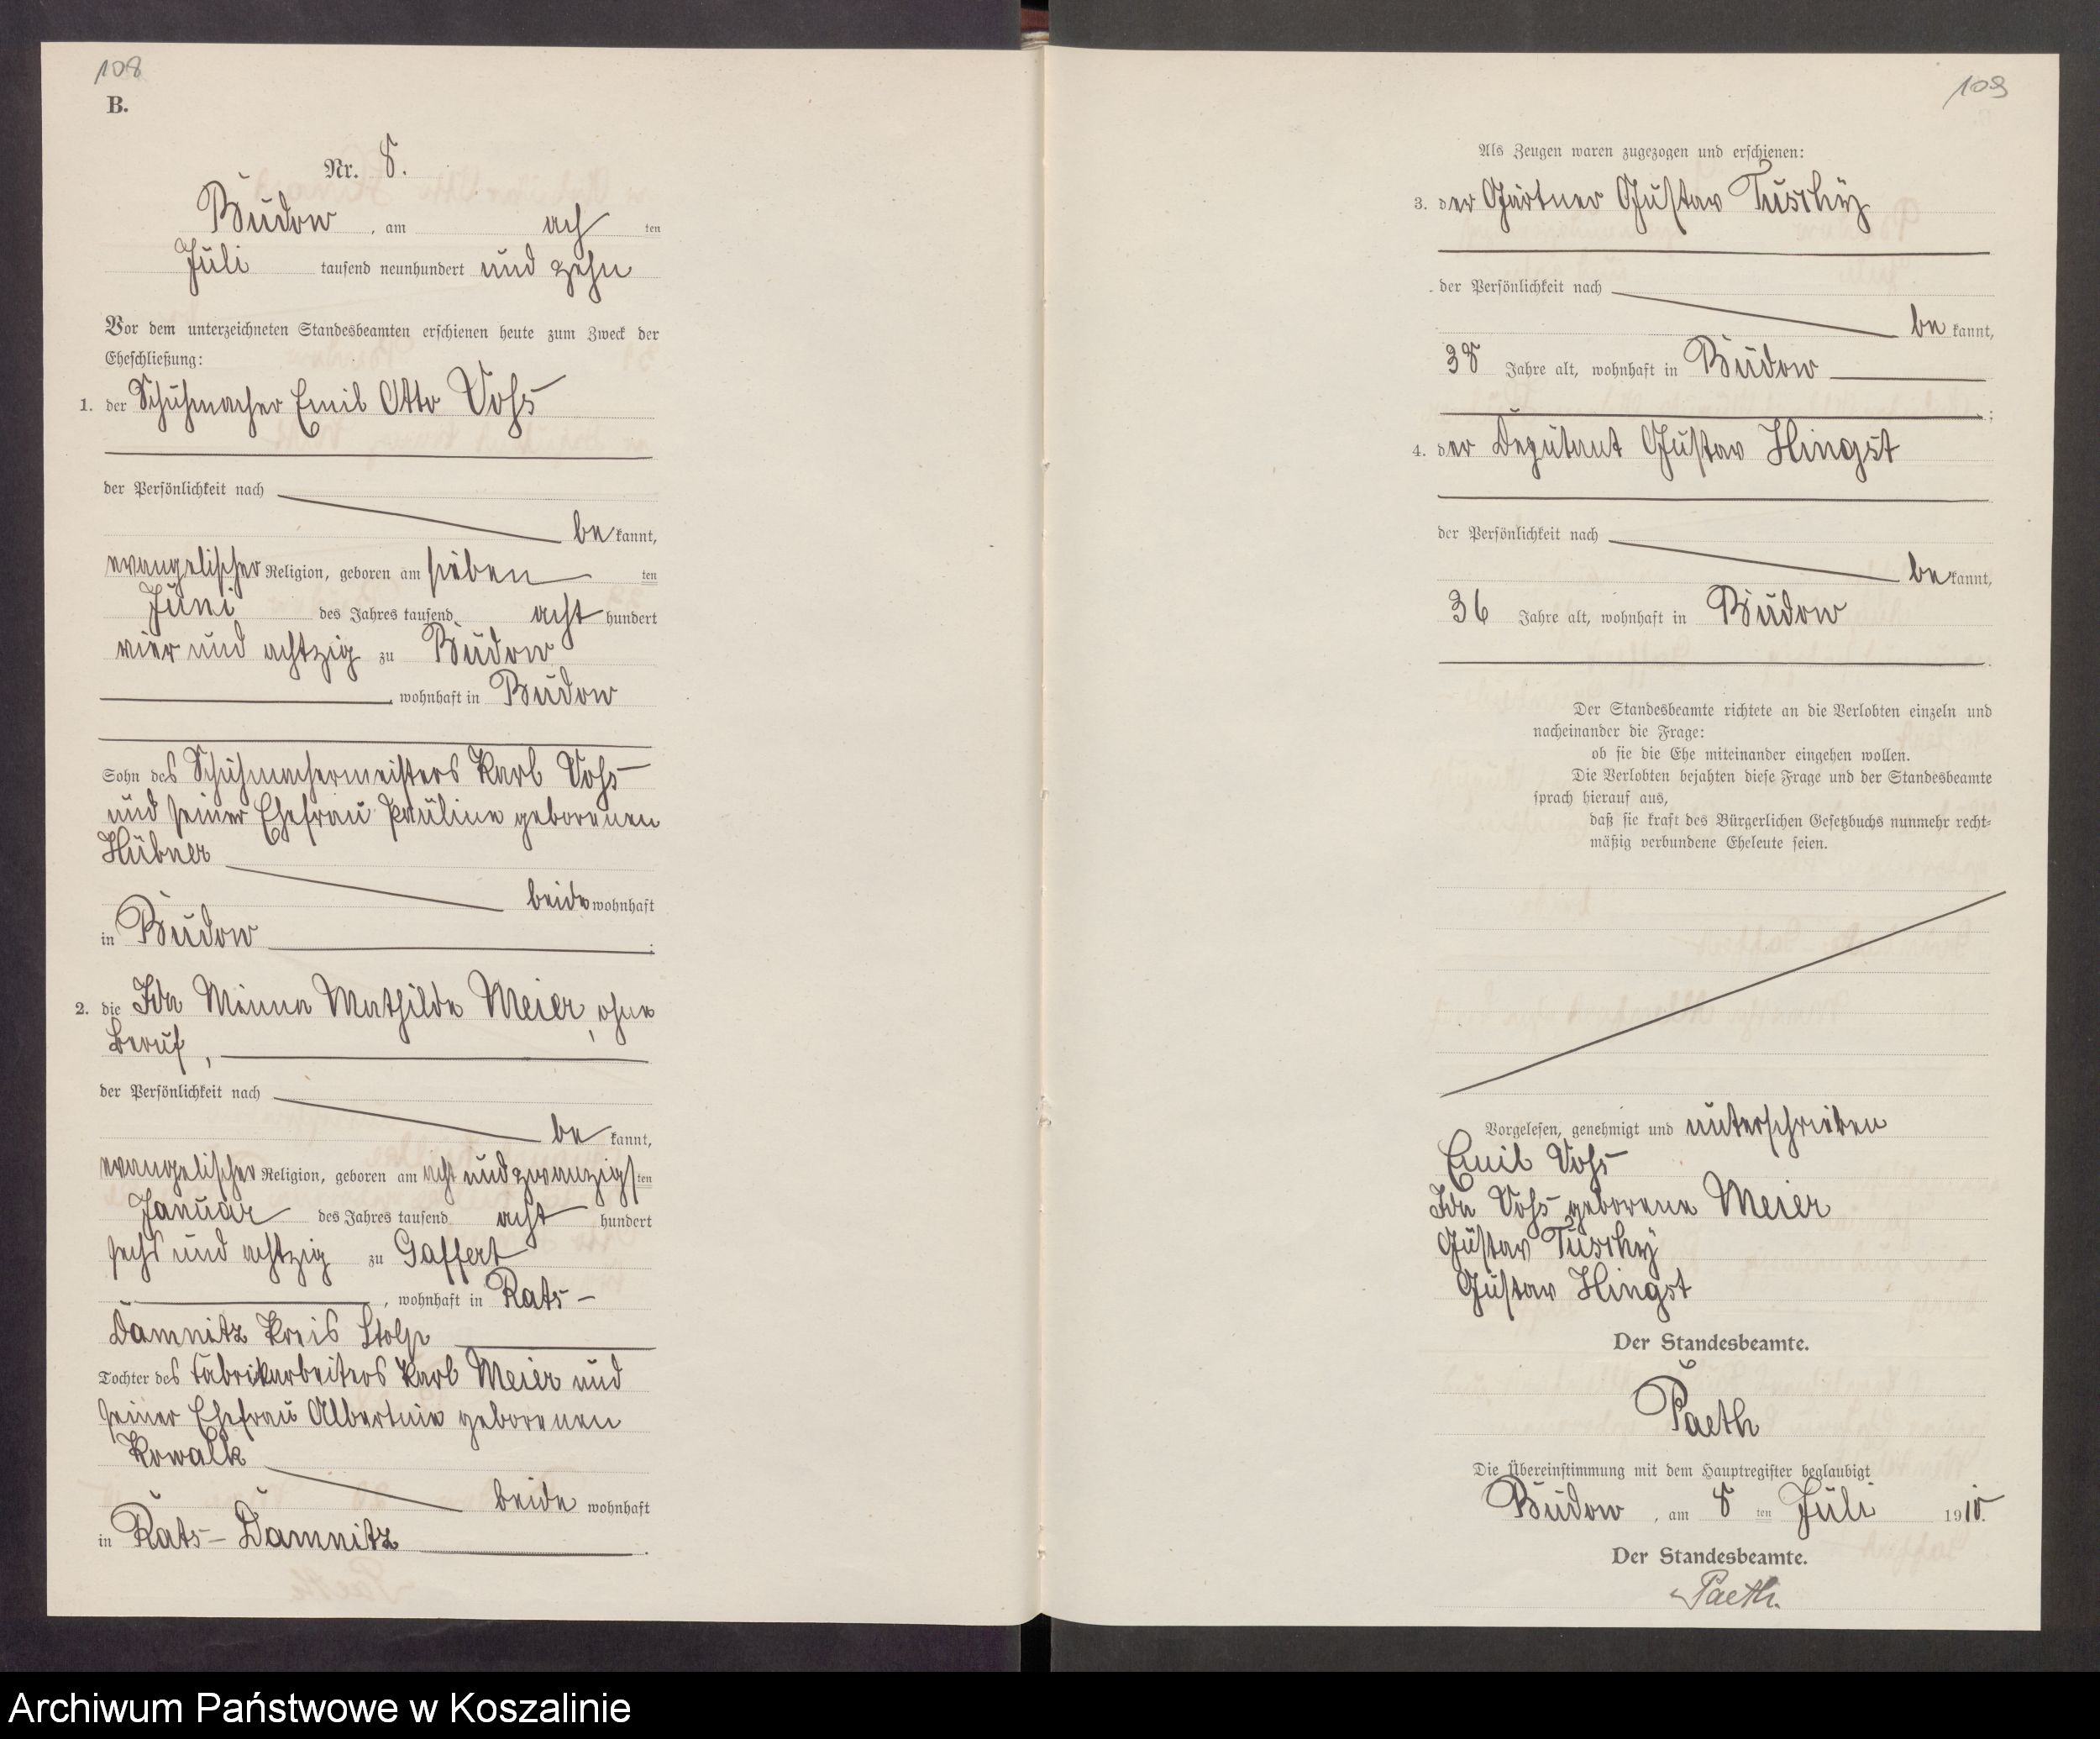 108
B.
Nr. 8.
Budow, am ach ten
Juli tausend neunhundert und zehn
Vor dem unterzeichneten Standesbeamten erschienen heute zum Zweck der
Eheschließung:
1. der Schuhmacher Emil Otto Vohs
der Persönlichkeit nach
be kannt,
evangelischer Religion, geboren am sieben ten
Juni des Jahres tausend acht hundert
vier und achtzig zu Budow
, wohnhaft in Budow
Sohn des Schuhmachermeisters Karl Vohs
und seiner Ehefrau Pauline geborenen
Hübner
beide wohnhaft
in Budow ;
2. die Ida Minna Mathilde Meier, ohne
Beruf,
der Persönlichkeit nach
be kannt,
evangelischer Religion, geboren am acht und zwanzigs ten
Januar des Jahres tausend acht hundert
sechs und achtzig zu Gaffert
, wohnhaft in Rats-
Damnitz Kreis Stolp
Tochter des Fabrikarbeiters Karl Meier und
seiner Ehefrau Albertine geborenen
Kowalk
beide wohnhaft
in Rats-Damnitz .
109
Als Zeugen waren zugezogen und erschienen:
3. der Gärtner Gustav Tuschy
der Persönlichkeit nach
be kannt,
38 Jahre alt, wohnhaft in Budow
;
4. der Deputant Gustav Hingst
der Persönlichkeit nach
be kannt,
36 Jahre alt, wohnhaft in Budow
.
Der Standesbeamte richtete an die Verlobten einzeln und
nacheinander die Frage:
ob sie die Ehe miteinander eingehen wollen.
Die Verlobten bejahten diese Frage und der Standesbeamte
sprach hierauf aus,
daß sie kraft des Bürgerlichen Gesetzbuchs nunmehr recht-
mäßig verbundene Eheleute seien.
Vorgelesen, genehmigt und unterschrieben
Emil Vohs
Ida Vohs geborene Meier
Gustav Tuschy
Gustav Hingst
Der Standesbeamte.
Paeth
Die Übereinstimmung mit dem Hauptregister beglaubigt
Budow, am 8 ten Juli 1910.
Der Standesbeamte.
Paeth.
Archiwum Państwowe w Koszalinie